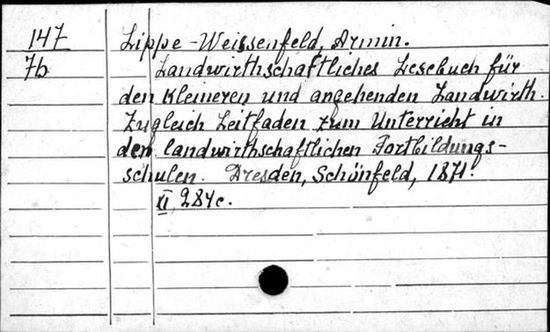 147
7b
Lippe-Weissenfeld, Armin.
Landwirthschaftliches Lesebuch für
den kleineren und angehenden Landwirth.
Zugleich Leitfaden zum Unterricht in
den landwirthschaftlichen Fortbildungs-
schulen. Dresden, Schönfeld, 1871.
XI, 284c.